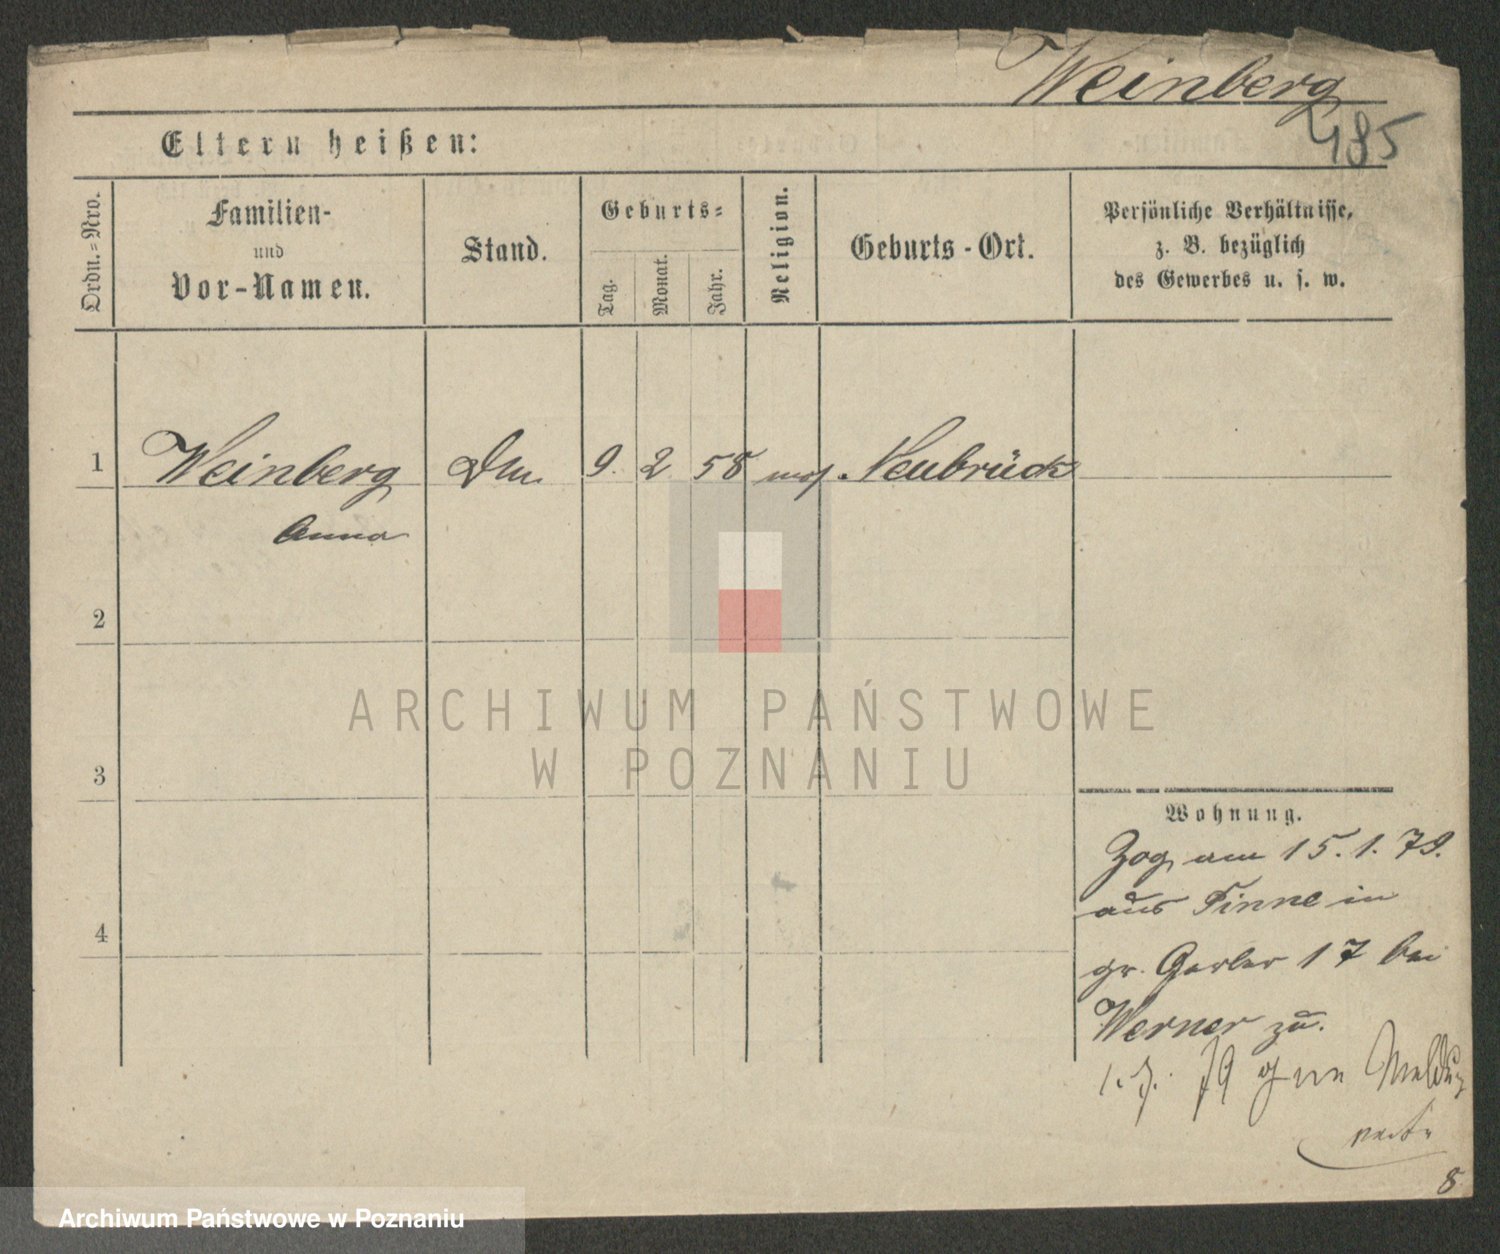 Weinberg
485
Eltern heißen:
Ordn.=Nro.
Familien-
und
Vor-Namen.
Stand.
Geburts=
Tag.
Monat.
Jahr.
Religion.
Geburts-Ort.
Persönliche Verhältnisse,
z. B. bezüglich
des Gewerbes u. s. w.
1 Weinberg 9. 2 58 mos. Neubrück
Anna
2
3
4
ARCHIWUM PAŃSTWOWE
W POZNANIU
Wohnung.
Zog am 15.1.79.
aus Pinne in
gr. Gerber 17 bei
Werner zu.
79 Meldung
8
Archiwum Państwowe w Poznaniu